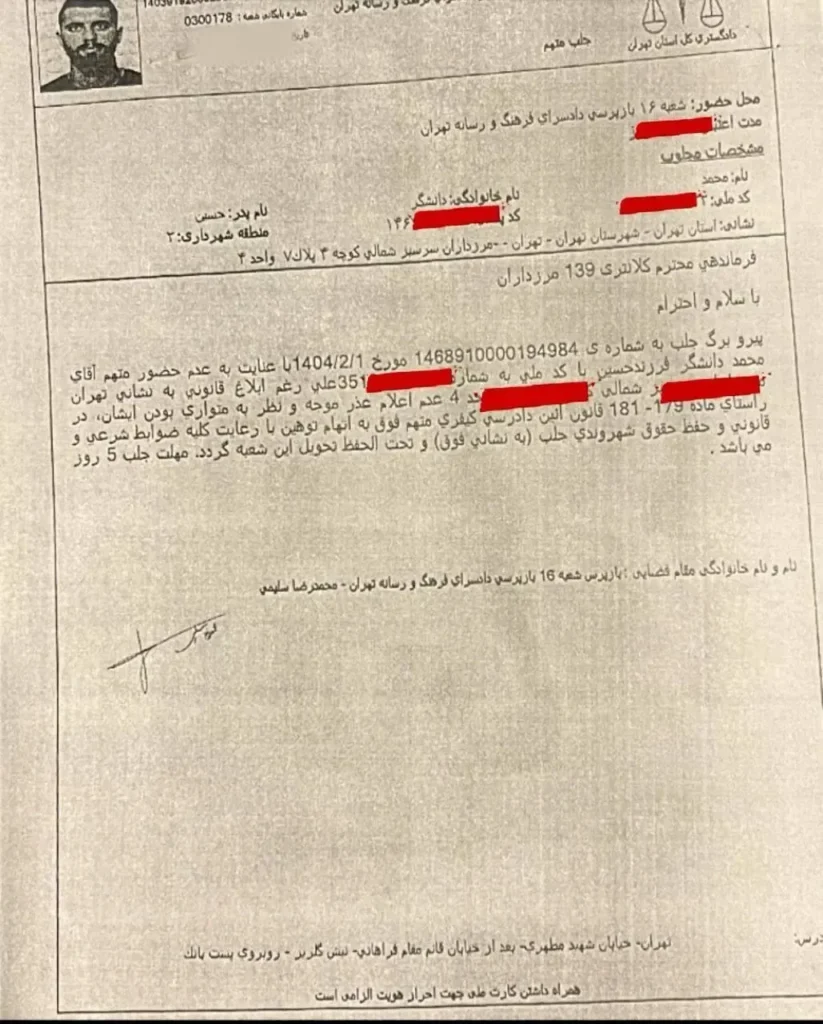 0300178 : شماره بایگانی شعبه
فرهنگ و رسانه تهران
دادگستری کل استان تهران
جلب متهم
محل حضور: شعبه ۱۶ بازپرسي دادسراي فرهنگ و رسانه تهران
مدت
مشخصات مجلوب
نام: محمد
نام خانوادگي: دانشگر
نام پدر: حسين
کد ملي:
کد
۱۴۶
منطقه شهرداری: ۲
نشاني: استان تهران - شهرستان تهران - تهران - -مرزداران سرسبز شمالي کوچه ۳ پلاک۷ واحد ۴
فرماندهي محترم کلانتری 139 مرزداران
با سلام و احترام
پيرو برگ جلب به شماره ی 1468910000194984 مورخ 1404/2/1با عنايت به عدم حضور متهم آقاي
محمد دانشگر فرزندحسين با کد ملي به شماره 351علي رغم ابلاغ قانوني به نشاني تهران
شمالي 4 عدم اعلام عذر موجه و نظر به متواري بودن ايشان، در
راستاي ماده 179- 181 قانون آئين دادرسي کيفري متهم فوق به اتهام توهين با رعايت کليه ضوابط شرعي و
قانوني و حفظ حقوق شهروندي جلب (به نشاني فوق) و تحت الحفظ تحويل اين شعبه گردد، مهلت جلب 5 روز
مي باشد .
نام و نام خانوادگي مقام قضايي : بازپرس شعبه 16 بازپرسي دادسراي فرهنگ و رسانه تهران - محمدرضا سليمي
تهران- خيابان شهيد مطهري- بعد از خيابان قائم مقام فراهاني- نبش گلريز - روبروي پست بانك
همراه داشتن کارت ملي جهت احراز هويت الزامی است